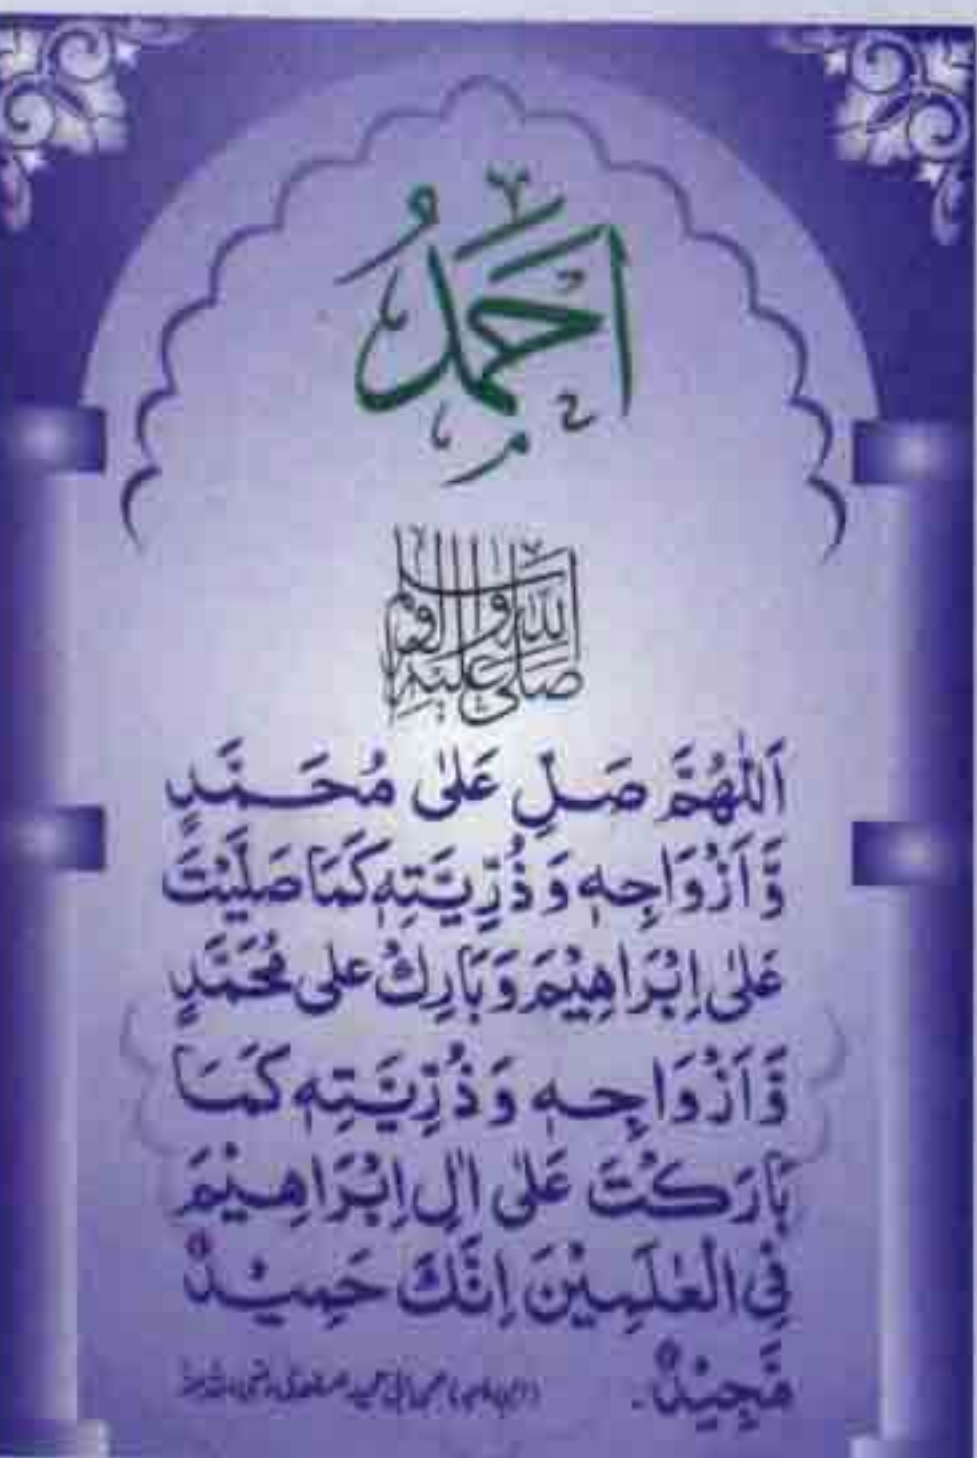 اَحْمَدُ
صَلَّى اللّٰهُ عَلَيْهِ وَاٰلِهٖ وَسَلَّمَ
اَللّٰهُمَّ صَلِّ عَلٰى مُحَمَّدٍ
وَّاَزْوَاجِهٖ وَذُرِّيَّتِهٖ كَمَا صَلَّيْتَ
عَلٰى اِبْرَاهِيْمَ وَبَارِكْ عَلٰى مُحَمَّدٍ
وَّاَزْوَاجِهٖ وَذُرِّيَّتِهٖ كَمَا
بَارَكْتَ عَلٰى اٰلِ اِبْرَاهِيْمَ
فِي الْعٰلَمِيْنَ اِنَّكَ حَمِيْدٌ
مَّجِيْدٌ.